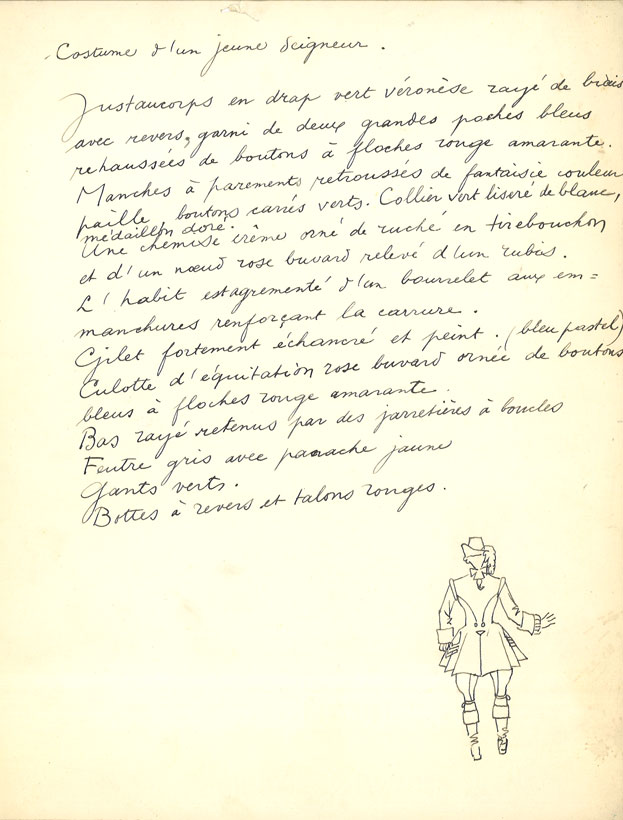 Costume d'un jeune Seigneur.
Justaucorps en drap vert véronèse rayé de biais
avec revers, garni de deux grandes poches bleus
rehaussées de boutons à floches rouge amarante.
Manches à parements retroussés de fantaisie couleur
paille boutons carrés verts. Collier vert liséré de blanc,
médaillon doré.
Une chemise crème orné de ruché en tirebouchon
et d'un nœud rose buvard relevé d'un rubis.
L'habit est agrementé d'un bourrelet aux em=
manchures renforçant la carrure.
Gilet fortement échancré et peint. (bleu pastel)
Culotte d'équitation rose buvard ornée de boutons
bleus à floches rouge amarante.
Bas rayé retenus par des jarretières à boucles
Feutre gris avec panache jaune
Gants verts.
Bottes à revers et talons rouges.